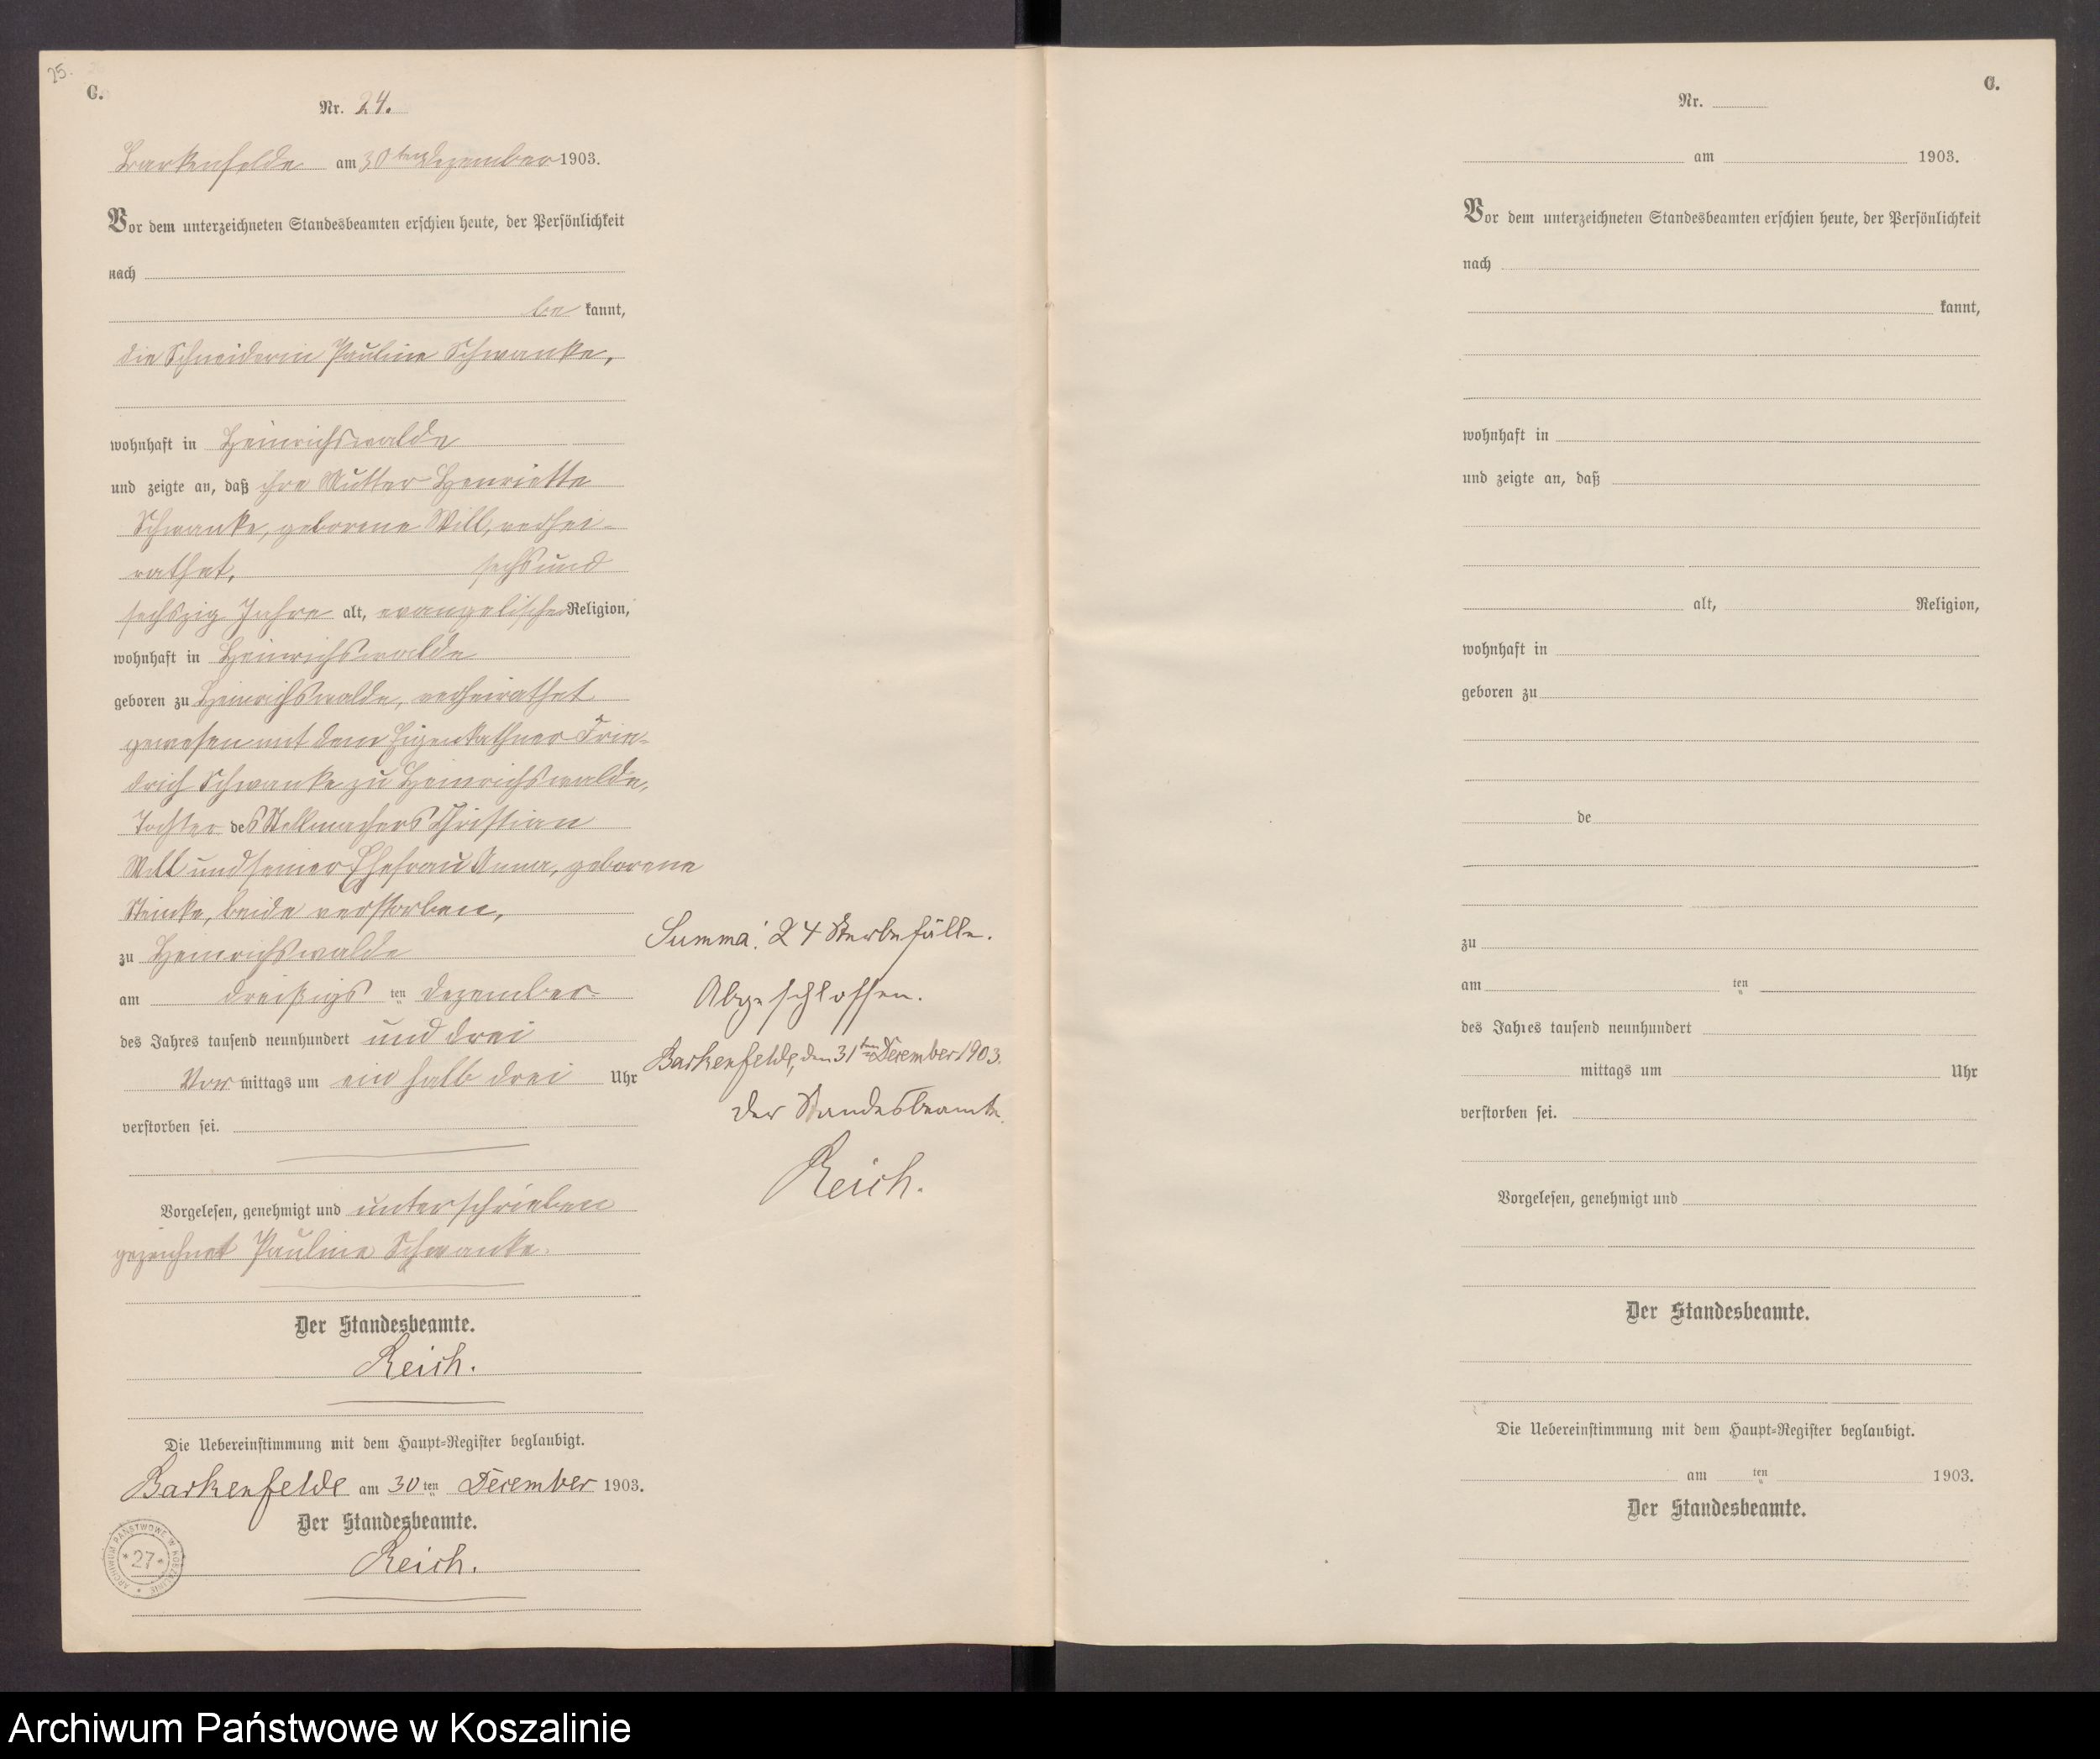 25.
C.
Nr. 24.
Barkenfelde am 30ten Dezember 1903.
Vor dem unterzeichneten Standesbeamten erschien heute, der Persönlichkeit
nach
be kannt,
die Schneiderin Pauline Schwanke,
wohnhaft in Heinrichswalde
und zeigte an, daß ihre Mutter Henriette
Schwanke, geborene Will, verhei-
rathet, sechsund
sechszig Jahre alt, evangelischer Religion,
wohnhaft in Heinrichswalde
geboren zu Heinrichswalde, verheirathet
gewesen mit dem Eigenkathner Frie-
drich Schwanke zu Heinrichswalde,
Tochter des Stellmachers Christian
Will und seiner Ehefrau Anna, geborene
Steinke, beide verstorben,
zu Heinrichswalde
am dreißigs ten Dezember
des Jahres tausend neunhundert und drei
Vor mittags um ein halb drei Uhr
verstorben sei.
Vorgelesen, genehmigt und unterschrieben
gezeichnet Pauline Schwanke.
Der Standesbeamte.
Reich.
Die Uebereinstimmung mit dem Haupt-Register beglaubigt.
Barkenfelde am 30 ten December 1903.
Der Standesbeamte.
Reich.
ARCHIWUM PAŃSTWOWE W KOSZALINIE
* 27 *
Summa: 24 Sterbefälle.
Abgeschlossen.
Barkenfelde, den 31ten December 1903.
Der Standesbeamte.
Reich.
C.
Nr.
am 1903.
Vor dem unterzeichneten Standesbeamten erschien heute, der Persönlichkeit
nach
kannt,
wohnhaft in
und zeigte an, daß
alt, Religion,
wohnhaft in
geboren zu
de
zu
am ten
des Jahres tausend neunhundert
mittags um Uhr
verstorben sei.
Vorgelesen, genehmigt und
Der Standesbeamte.
Die Uebereinstimmung mit dem Haupt-Register beglaubigt.
am ten 1903.
Der Standesbeamte.
Archiwum Państwowe w Koszalinie